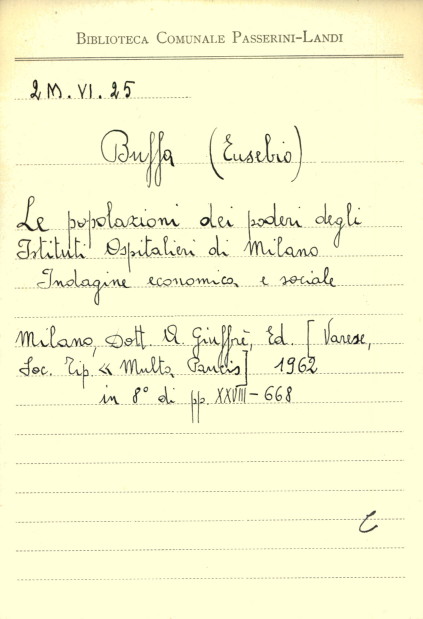 BIBLIOTECA COMUNALE PASSERINI-LANDI
2 M. VI. 25
Buffa (Eusebio)
Le popolazioni dei poderi degli
Istituti Ospitalieri di Milano
Indagine economica e sociale
Milano, Dott. A. Giuffrè, Ed. [Varese,
Soc. Tip. « Multa Paucis] 1962
in 8° di pp. XXVIII-668
C